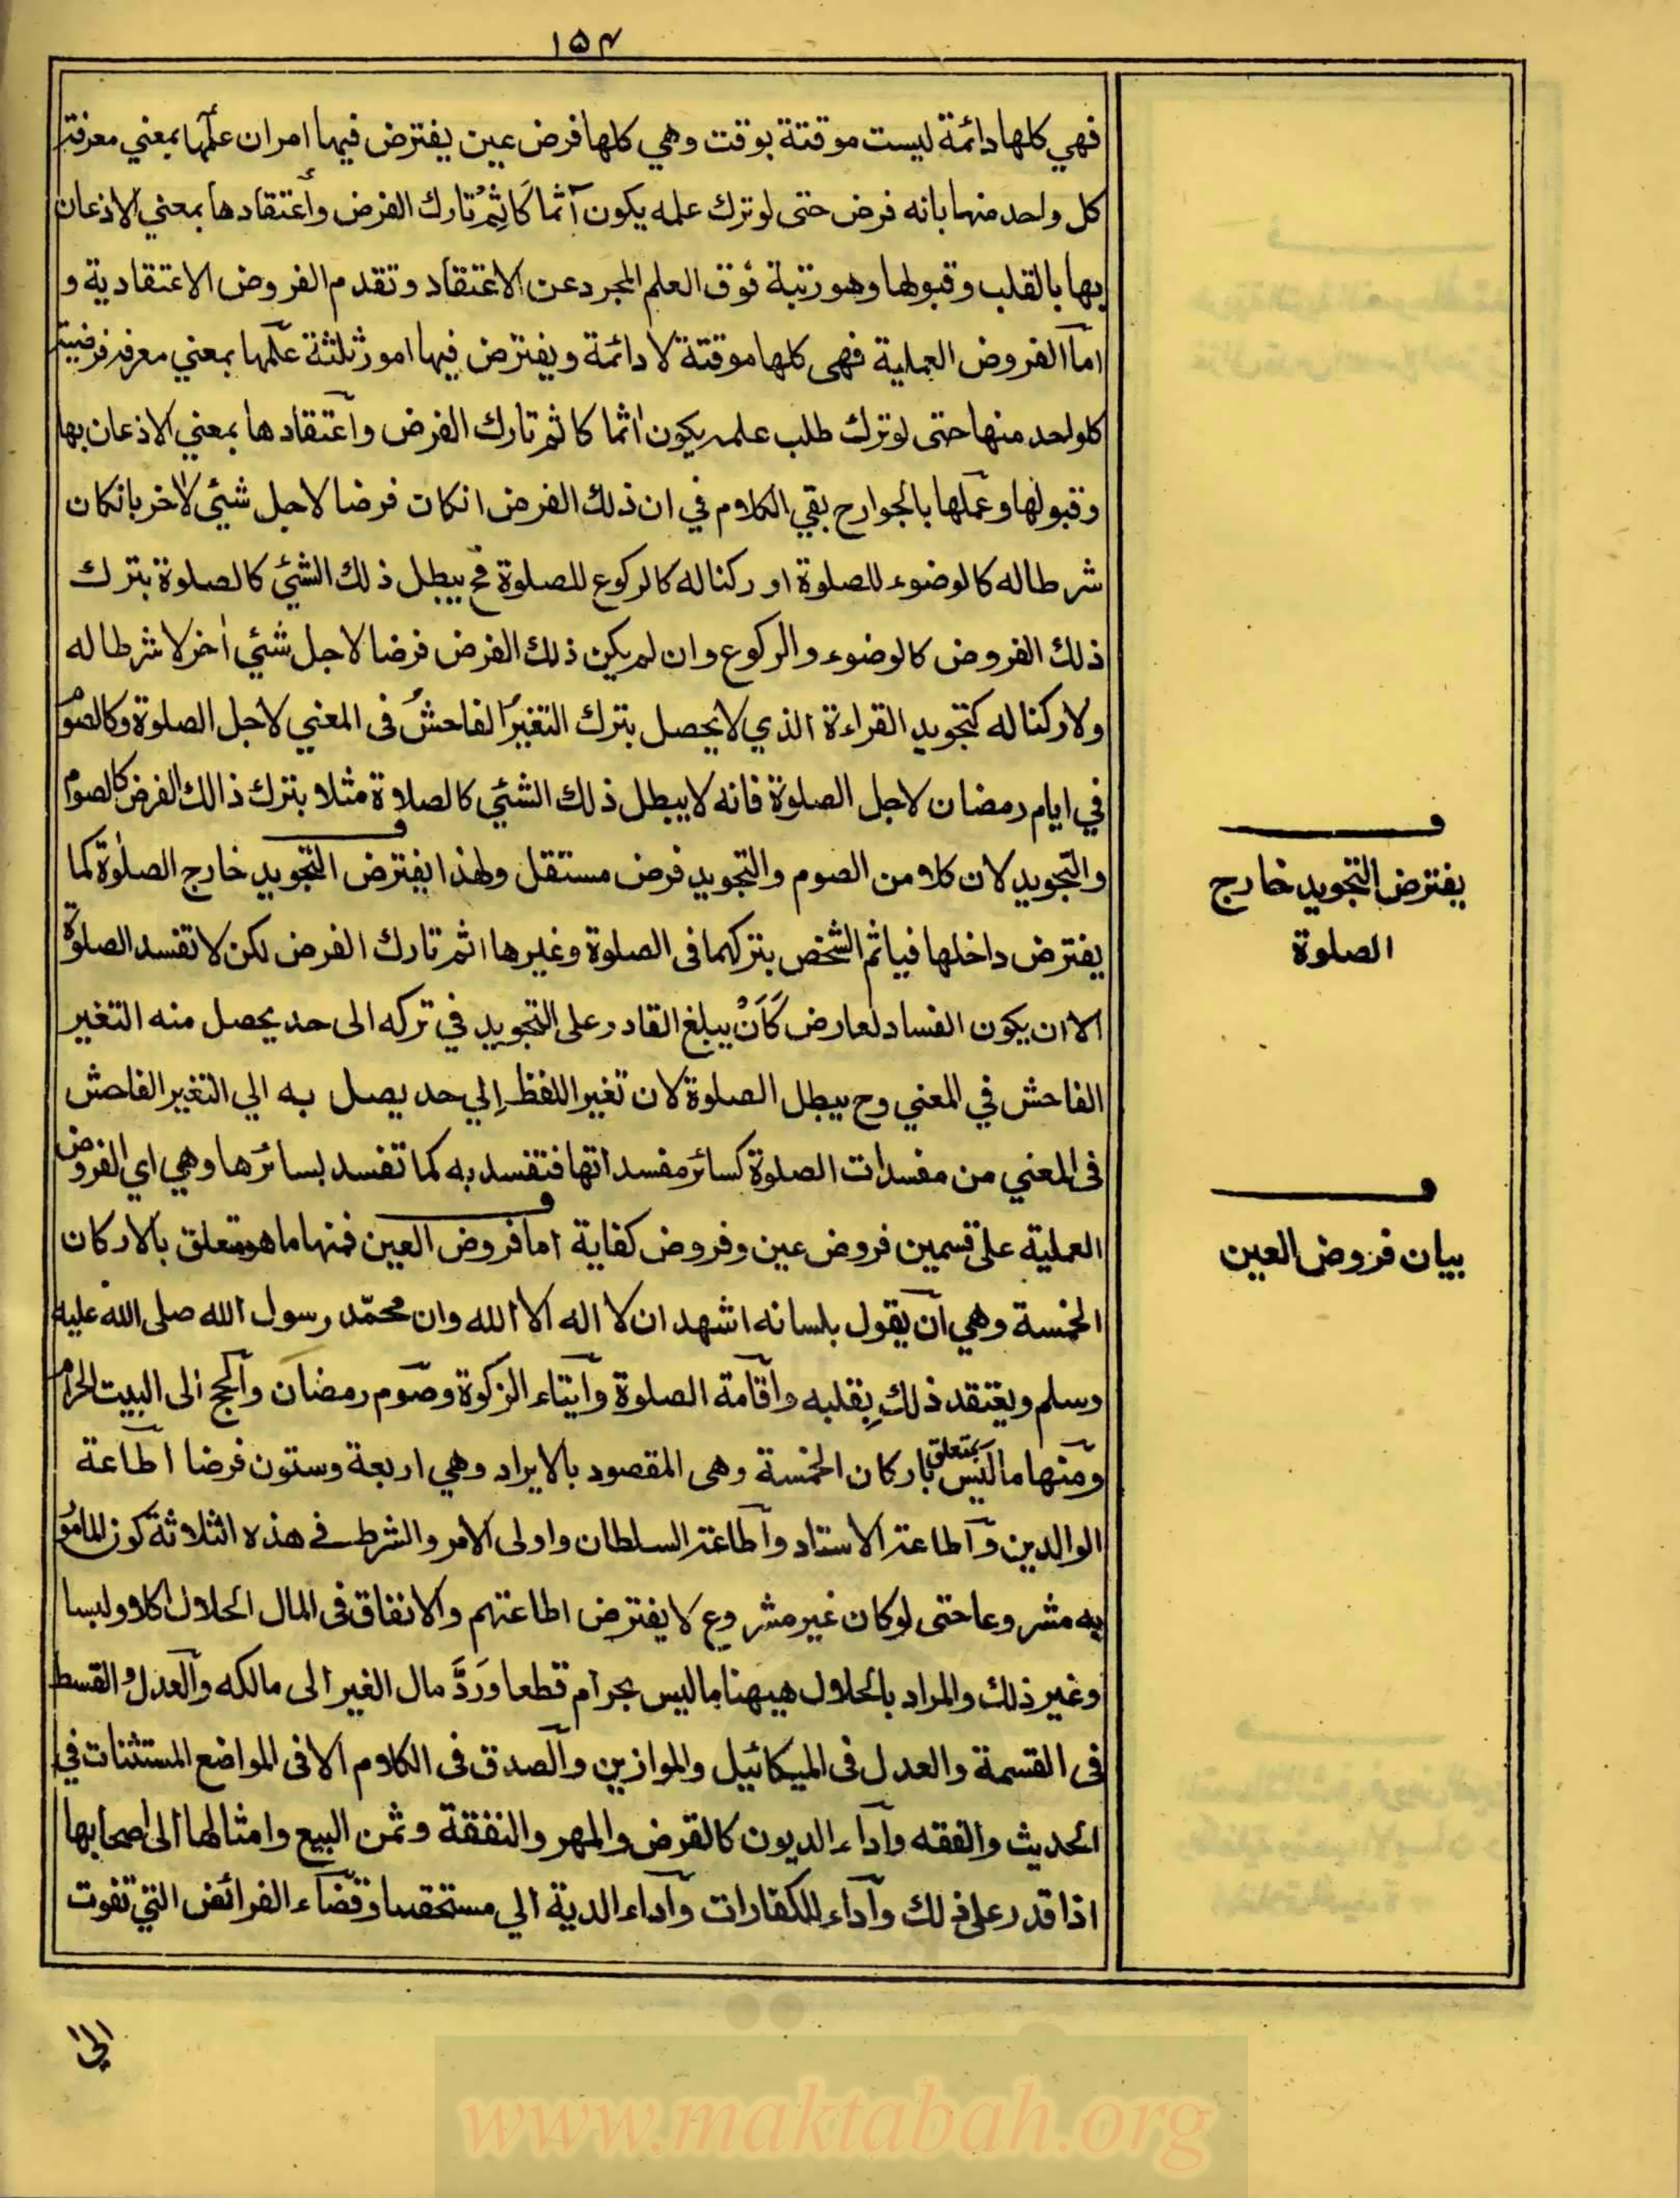 ١٥٤
فهي كلها دائمة ليست موقتة بوقت وهي كلها فرض عين يفترض فيها امران علمها بمعني معرفة
كل واحد منها بانه فرض حتى لو ترك علمه يكون آثما كَاِثْمِ تارك الفرض وأعتقادها بمعني الاذعان
بها بالقلب وقبولها وهو رتبة فوق العلم المجرد عن الاعتقاد وتقدم الفروض الاعتقادية و
اما الفروض العملية فهى كلها موقتة لا دائمة ويفترض فيها امور ثلثة علمها بمعني معرفة فرضية
كلواحد منها حتى لو ترك طلب علمه يكون اٰثما كاثم تارك الفرض وآعتقادها بمعني الاذعان بها
وقبولها وعملها بالجوارح بقي الكلام في ان ذلك الفرض انكات فرضا لاجل شيئ لاٰخر بانكان
شرطا له كالوضوء للصلوة او ركنا له كالركوع للصلوة فح يبطل ذلك الشيئ كالصلوة بترك
ذلك الفروض كالوضوء والركوع وان لم يكن ذلك الفرض فرضا لاجل شئي اٰخر لا شرطا له
ولا ركنا له كتجويد القراءة الذي لا يحصل بترك التغيرُ الفاحشُ فى المعني لاجل الصلوة وكالصوم
في ايام رمضان لاجل الصلوة فانه لا يبطل ذلك الشئي كالصلاة مثلا بترك ذالك الفرض كالصوم
والتجويد لان كلا من الصوم والتجويد فرض مستقل ولهذا يفترض التجويد خارج الصلوٰة كما
يفترض التجويد خارج
الصلوة
يفترض داخلها فياثم الشخص بتركهما فى الصلوة وغيرها اثم تارك الفرض لكن لا تفسد الصلوة
الا ان يكون الفساد لعارض كَاَنْ يبلغ القادر على التجويد في تركه الى حد يحصل منه التغير
الفاحش في المعني وح يبطل الصلوة لان تغير اللفظ اِلي حد يصل به الي التغير الفاحش
فى المعني من مفسدات الصلوة كسائر مفسداتها فتفسد به كما تفسد بسائرها وهي اي الفروض
العملية على قسمين فروض عين وفروض كفاية اما فروض العين فمنها ما هو متعلق بالاركان
بيان فروض العين
الخمسة وهي آن يقول بلسانه اشهد ان لا اله الا الله وان محمّد رسول الله صلى الله عليه
وسلم ويعتقد ذلك بِقلبه وآقامة الصلوة وآيتاء الزكوة وصوم رمضان وآلحج الى البيت الحرام
ومنها ما لَيَس بمتعلق باركان الخمسة وهى المقصود بالايراد وهي اربعة وستون فرضا اطاعة
الوالدين وآطاعة الاستاد وآطاعة السلطان واولى الامر والشرط فے هذه الثلاثة كون المامور
به مشروعا حتى لو كان غير مشروع لا يفترض اطاعتهم والانفاق فى المال الحلال اكلا ولبسا
وغير ذلك والمراد بالحلال هيهنا ما ليس بحرام قطعا وَرَدَّ مال الغير الى مالكه وآلعدل والقسط
فى القسمة والعدل فى الميكائيل والموازين وآلصدق فى الكلام الا فى المواضع المستثنات في
الحديث والفقه وآداء الديون كالقرض والمهر والنفقة وثمن البيع وامثالها الى اصحابها
اذا قدر على ذلك وآداء الكفارات وآداء الدية الي مستحقها وقضاء الفرائض التي تفوت
الى
www.maktabah.org